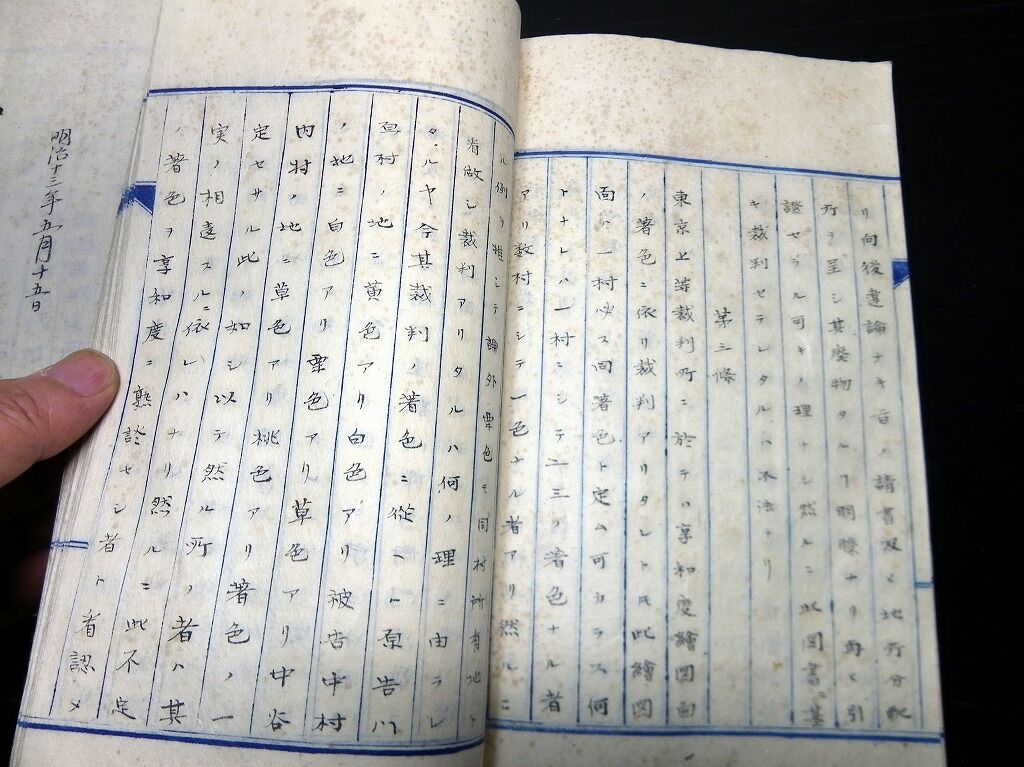 リ向後違論ナキ旨ノ請書及ヒ地所分配
所ヲ呈シ其廃物タルヿ明瞭ナリ両ヒ引
證セラル可キノ理ナシ然ルニ此図書ニ基
キ裁判セラレタルハ不法ナリ
第三條
東京上等裁判所ニ於テハ享和度繪図面
ノ著色ニ依リ裁判アリタレトモ此繪図
面ハ一村必ス同著色ト定ム可カラス何
トナレハ一村ニシテ二三ノ著色ナル者
アリ数村ニシテ一色ナル者アリ然ルニ
ル例ヲ推シテ論外栗色モ同村所有地ト
看做シ裁判アリタルハ何ノ理ニ由ラレ
タルヤ今其裁判ノ著色ニ從ヘハ原告川
西村ノ地ニ黄色アリ白色アリ被告中村
ノ地ニ白色アリ栗色アリ草色アリ中谷
内村ノ地ニ草色アリ桃色アリ著色ノ一
定セサル此ノ如シ以テ然ル所ノ者ハ其
実ノ相違スルニ依レハナリ然ルニ此不定
ノ著色ヲ享和度ニ熟談セシ者ト看認メ
明治十三年五月十五日